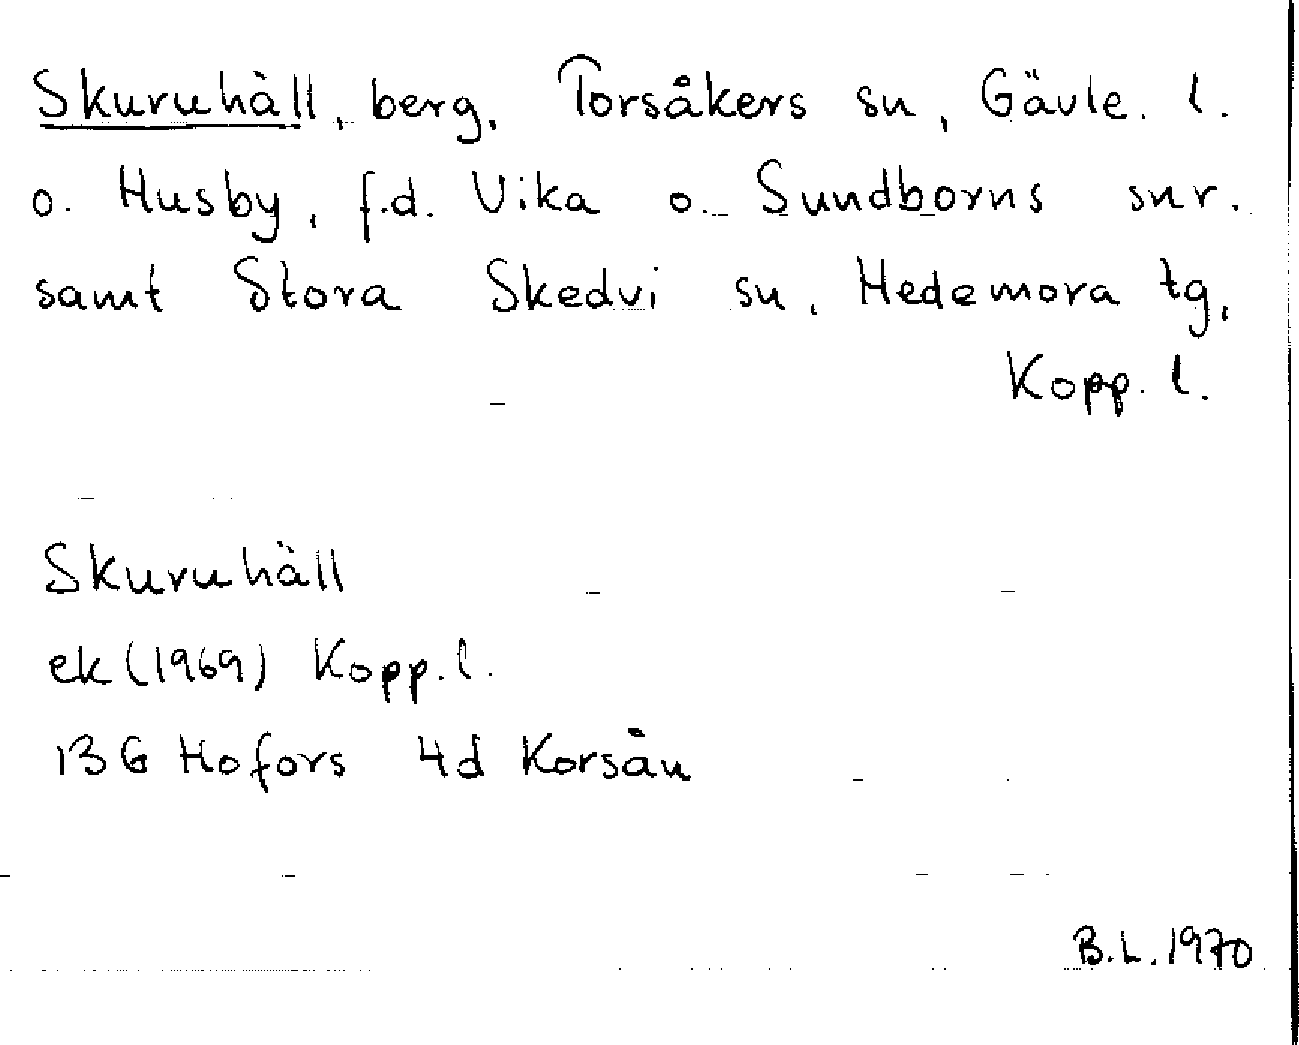 Skuruhäll, berg, Torsåkers sn, Gävle. l.
o. Husby, f.d. Vika o. Sundborns snr.
samt Stora Skedvi sn, Hedemora tg,
Kopp. l.
Skuruhäll
ek (1969) Kopp. l.
13G Hofors 4d Korsån
B.L. 1970